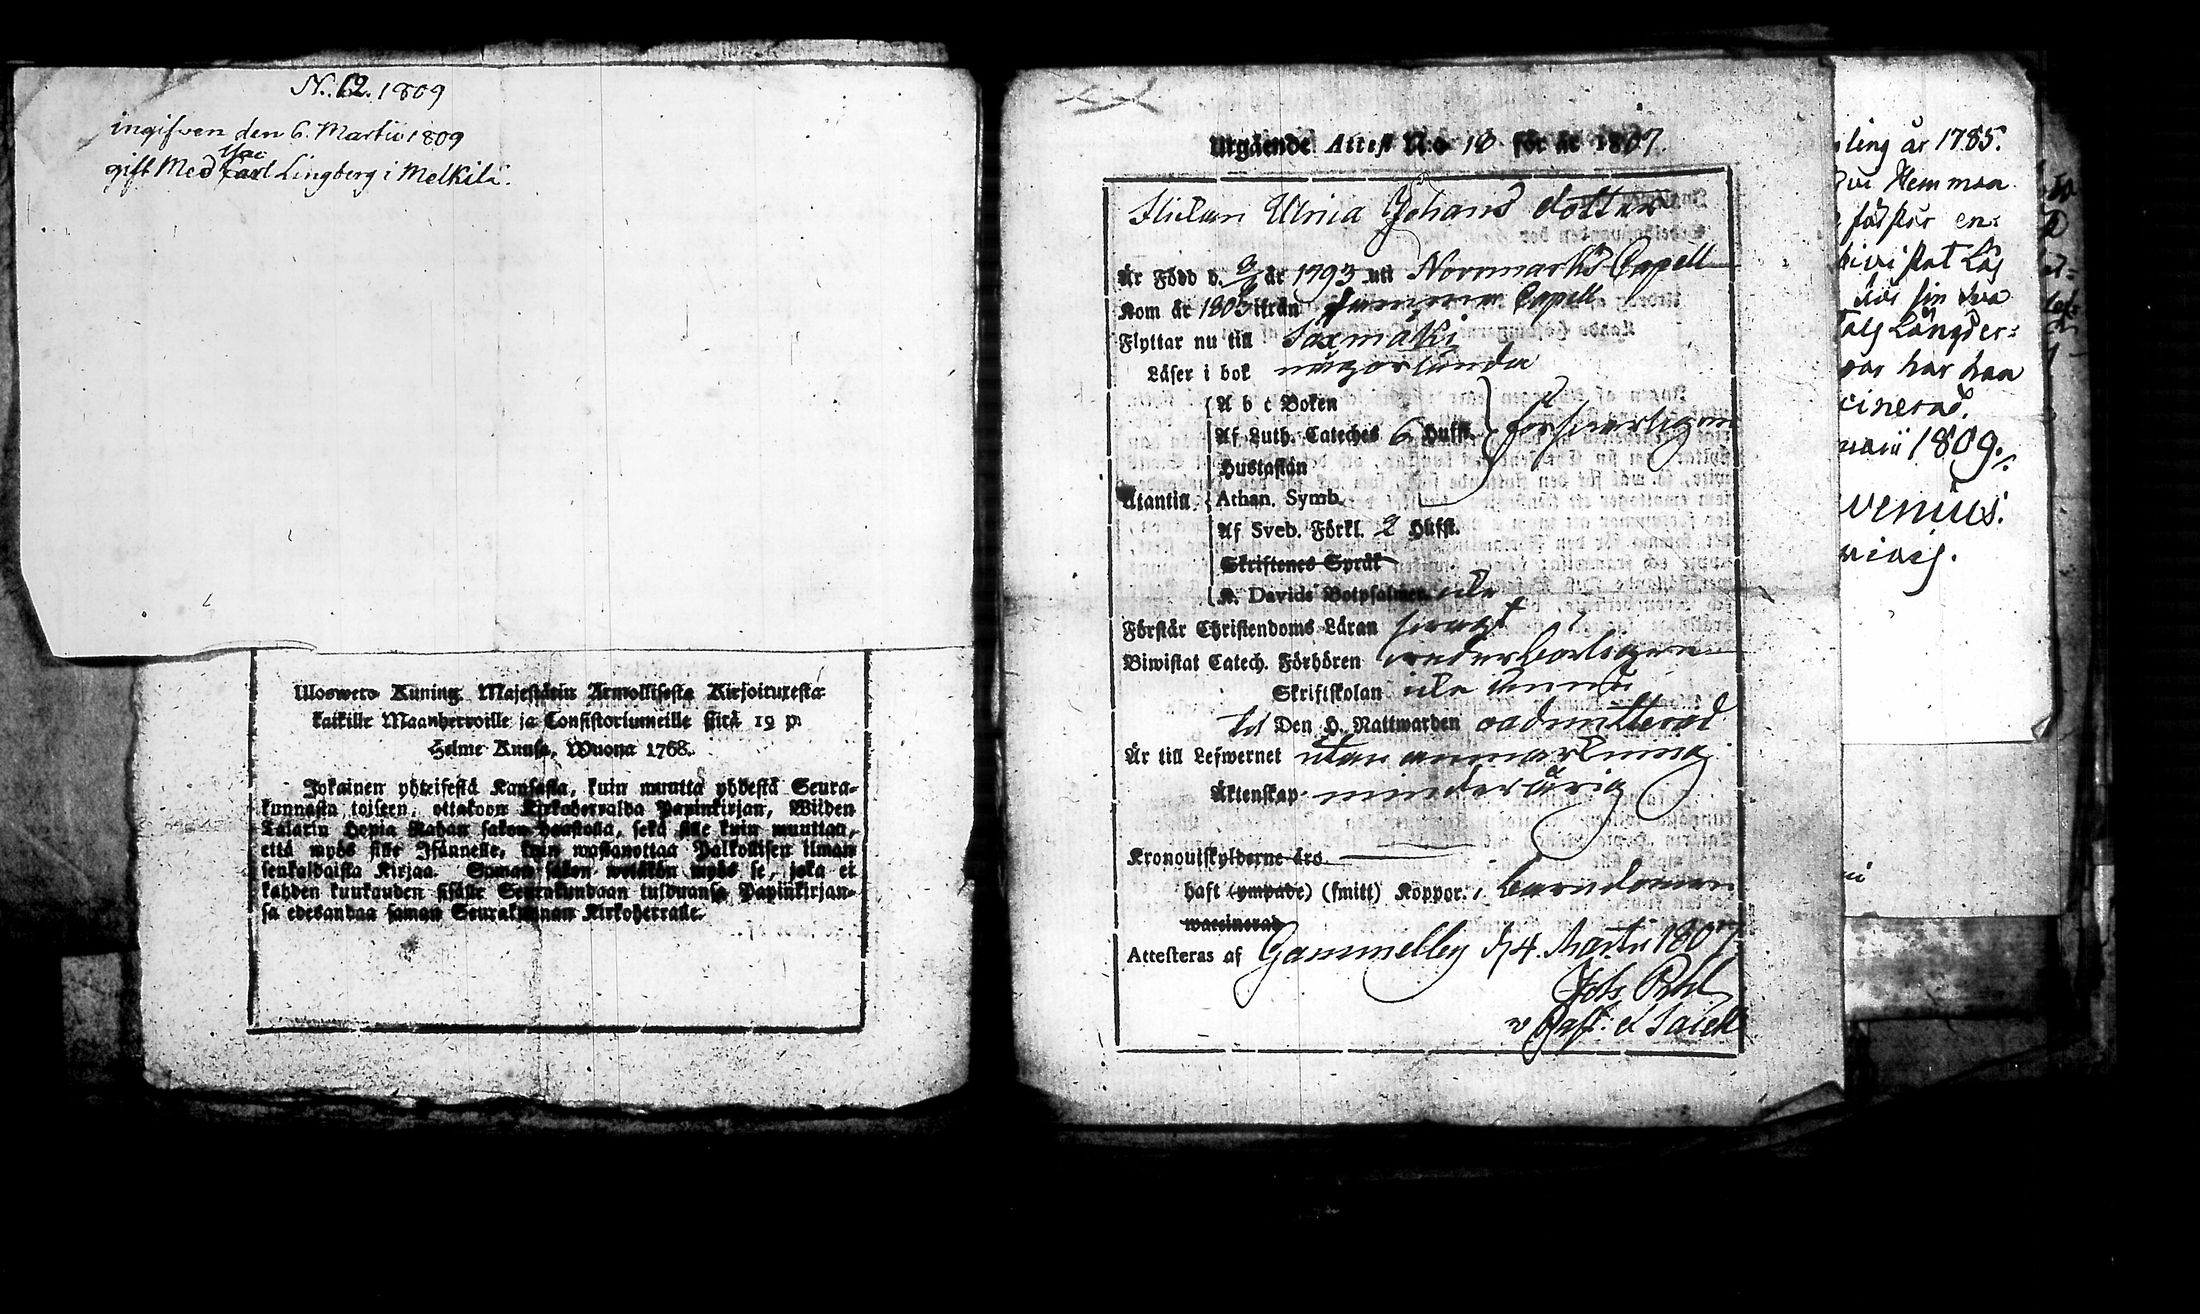 N. 12. 1809
ingifven den 6. Martii 1809
gift Med Carl Lingberg i Melkilä.
Ulosweto Kuning. Majestätin Armollisesta Kirjoituxesta
kaikille Maanherroille ja Consistoriumeille siitä 19 p.
Helme Kuusa, Wuona 1768.
Jokainen yhteisestä Kansasta, kuin muutta yhdestä Seura-
kunnasta toiseen, ottakoon Kirkoherralda Papinkirjan, Wiiden
Talarin Hopia Rahan sakon haastolla, sekä sille kuin muuttan,
että myös sille Isännelle, kuin wastanottaa Palkollisen ilman
senkaldaista Kirjaa. Saman sakon wetäkön myös se, joka ei
kahden kuukauden sisälle Seurakundaan tulduansa Papinkirjan-
sa edesandaa saman Seurakunnan Kirkoherralle.
Utgående Attest N:o 18 för år 1807.
Pielan Ulrica Johans dotter
Är Född d. år 1793 uti Norrmarks Capell
Kom år 1805 ifrån samma Capell
Flyttar nu till Saxmäki
Läser i bok någorlunda
A b c Boken
Af Luth. Cateches 6 Hufst. försvarligen
Hustaflan
Utantill Athan. Symb.
Af Sveb. Förkl. 2 Hufst.
Skriftenes Språk
K. Davids Botpsalmer. icke
Förstår Christendoms Läran svagt
Biwistat Catech. Förhören vederbörligen
Skriftskolan icke ännu
til Den H. Nattwarden oadmitterad
Är till Lefwernet utan anmärkning
Äktenskap minderårig
Kronoutskylderne äro
haft (ympade) (smitt) Koppor. i barndomen
waccinerad
Attesteras af Gammelby d. 4. Martii 1807
Joh. Pihl
v Past:
ling år 1785.
Hemman
en:
bivistat Läs
sin
Längder:
har han
cinerad.
uarii 1809.
venius.